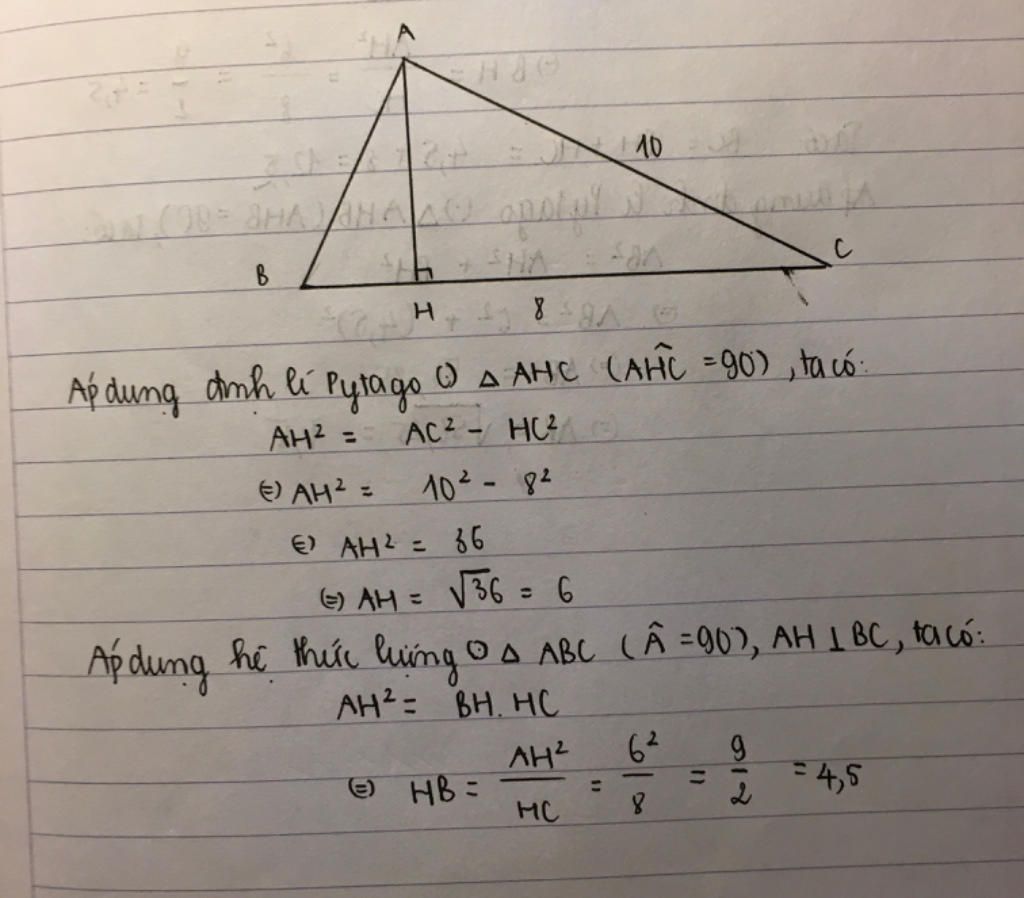 A
10
B
C
H
8
Áp dụng định lí Pytago ⊙ Δ AHC (AĤC = 90), ta có:
AH² = AC² - HC²
(=) AH² = 10² - 8²
(=) AH² = 36
(=) AH = √36 = 6
Áp dụng hệ thức lượng ⊙ Δ ABC (Â = 90), AH ⊥ BC, ta có:
AH² = BH . HC
(=) HB = AH²/HC = 6²/8 = 9/2 = 4,5